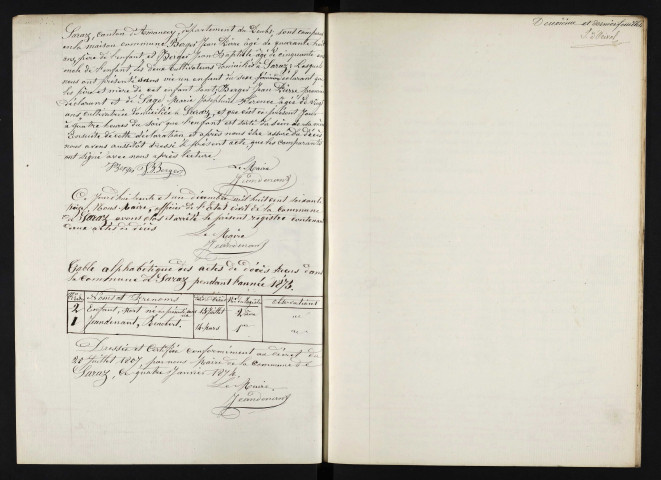 Saraz, canton d'Amancey, département du Doubs, sont comparus
en la maison commune Berger Jean Pierre âgé de quarante huit
ans, père de l'enfant, et Berger Jean Baptiste âgé de cinquante ans
oncle de l'enfant les deux cultivateurs domiciliés à Saraz; lesquels
nous ont présenté sans vie un enfant du sexe féminin déclarant que
les père et mère de cet enfant sont Berger Jean Pierre premier
déclarant et de Sage Marie Joséphine Florence âgée de
ans cultivatrice domiciliée à Saraz, et que c'est ce présent jour
à quatre heures du soir que l'enfant est sorti du sein de sa mère
Ensuite de cette déclaration et après nous être assuré du décès
nous avons aussitôt dressé le présent acte, que les comparants
ont signé avec nous après lecture.
Berger JBBerger Le Maire
Jeandenand
Ce jourd'hui trente et un décembre mil huit cent soixante
treize, Nous Maire, officier de l'Etat civil de la Commune
de Saraz avons clos et arrêté le présent registre contenant
deux actes de décès
Le Maire
Jeandenand
Table alphabétique des actes de décès reçus dans
la Commune de Saraz pendant l'année 1873.
Noms et Prénoms
2 Enfant, mort né 15 juillet 2
1 Jeandenant, 14 mars 1er
Dressée et Certifiée conformément au décret du
20 Juillet 1807 par nous Maire de la Commune de
Saraz, ce quatre Janvier 1874.
Le Maire
Jeandenand
Deuxième et dernier feuillet